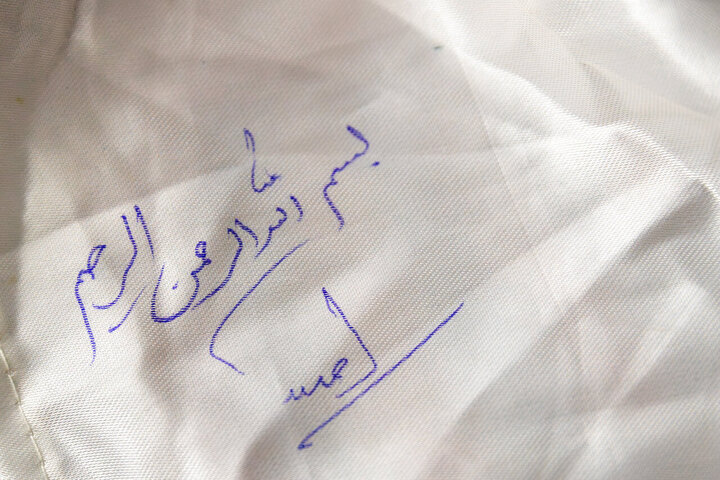 بسم الله الرحمن الرحيم
احمد